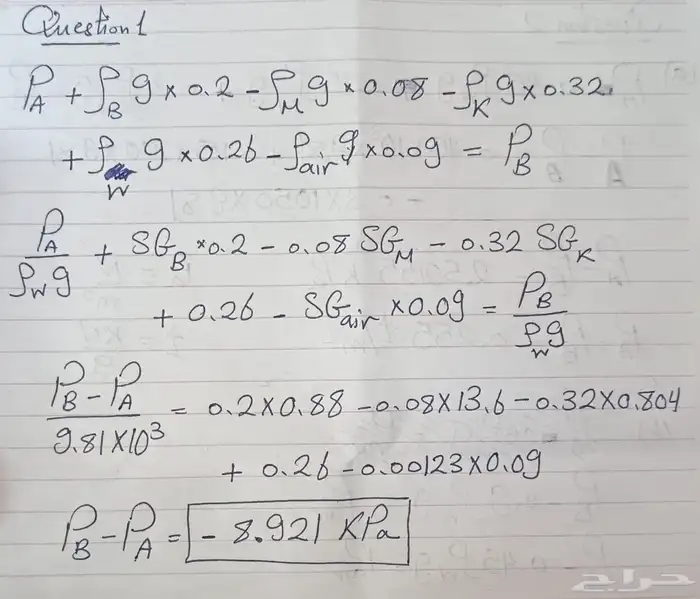 Question 1
P_A + ρ_B g × 0.2 - ρ_M g × 0.08 - ρ_K g × 0.32
+ ρ_W g × 0.26 - ρ_air g × 0.09 = P_B
P_A / ρ_W g + SG_B × 0.2 - 0.08 SG_M - 0.32 SG_K
+ 0.26 - SG_air × 0.09 = P_B / ρ_W g
P_B - P_A / 9.81 × 10³ = 0.2 × 0.88 - 0.08 × 13.6 - 0.32 × 0.804
+ 0.26 - 0.00123 × 0.09
P_B - P_A = - 8.921 KPa
حراج